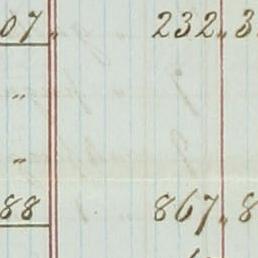 07 232. 3
"
"
88 867. 8